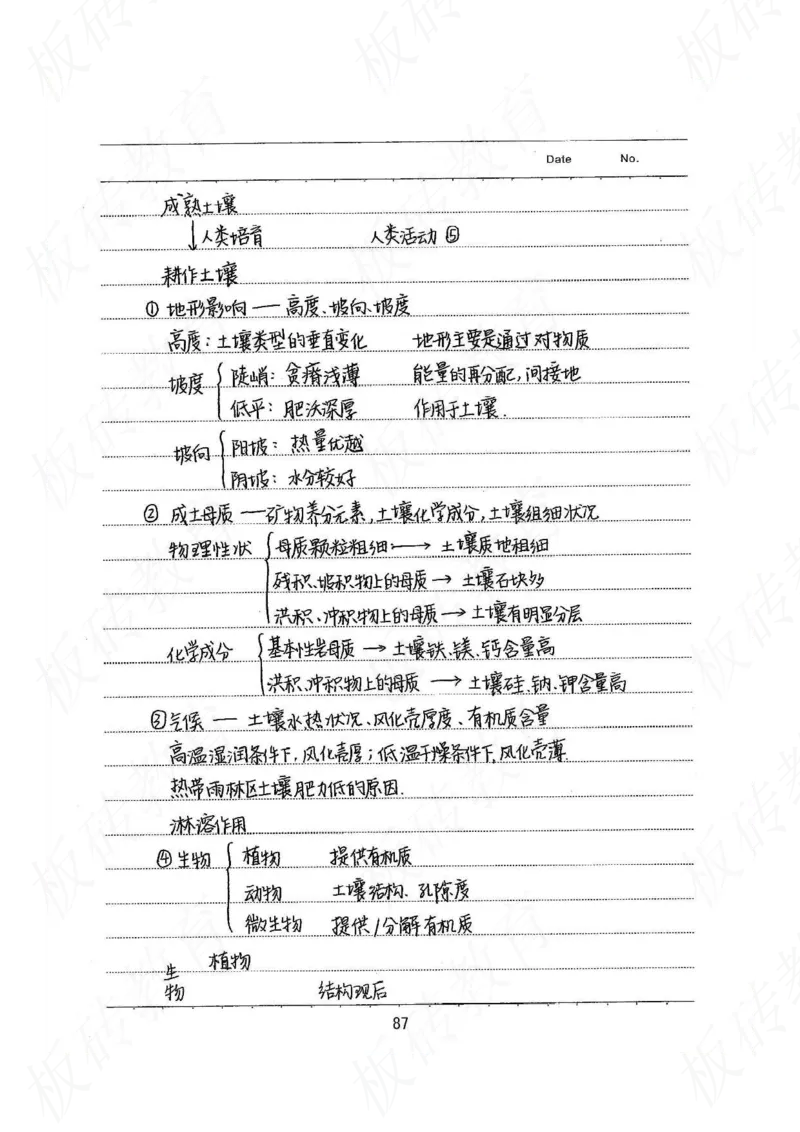 Date No.
成熟土壤
↓人类培育 人类活动⑤
耕作土壤
①地形影响——高度、坡向、坡度
高度：土壤类型的垂直变化 地形主要是通过对物质
坡度 { 陡峭：贫瘠浅薄 能量的再分配，间接地
低平：肥沃深厚 作用于土壤.
坡向 { 阳坡：热量优越
阴坡：水分较好
②成土母质——矿物养分元素，土壤化学成分，土壤粗细状况
物理性状 { 母质颗粒粗细 → 土壤质地粗细
残积、坡积物上的母质 → 土壤石块多
洪积、冲积物上的母质 → 土壤有明显分层
化学成分 { 基本性岩母质 → 土壤铁、镁、钙含量高
洪积、冲积物上的母质 → 土壤硅、钠、钾含量高
③气候——土壤水热状况、风化壳厚度、有机质含量
高温湿润条件下，风化壳厚；低温干燥条件下，风化壳薄.
热带雨林区土壤肥力低的原因.
淋溶作用
④生物 { 植物 提供有机质
动物 土壤结构、孔隙度
微生物 提供/分解有机质
生物 植物
结构
87
板砖教育